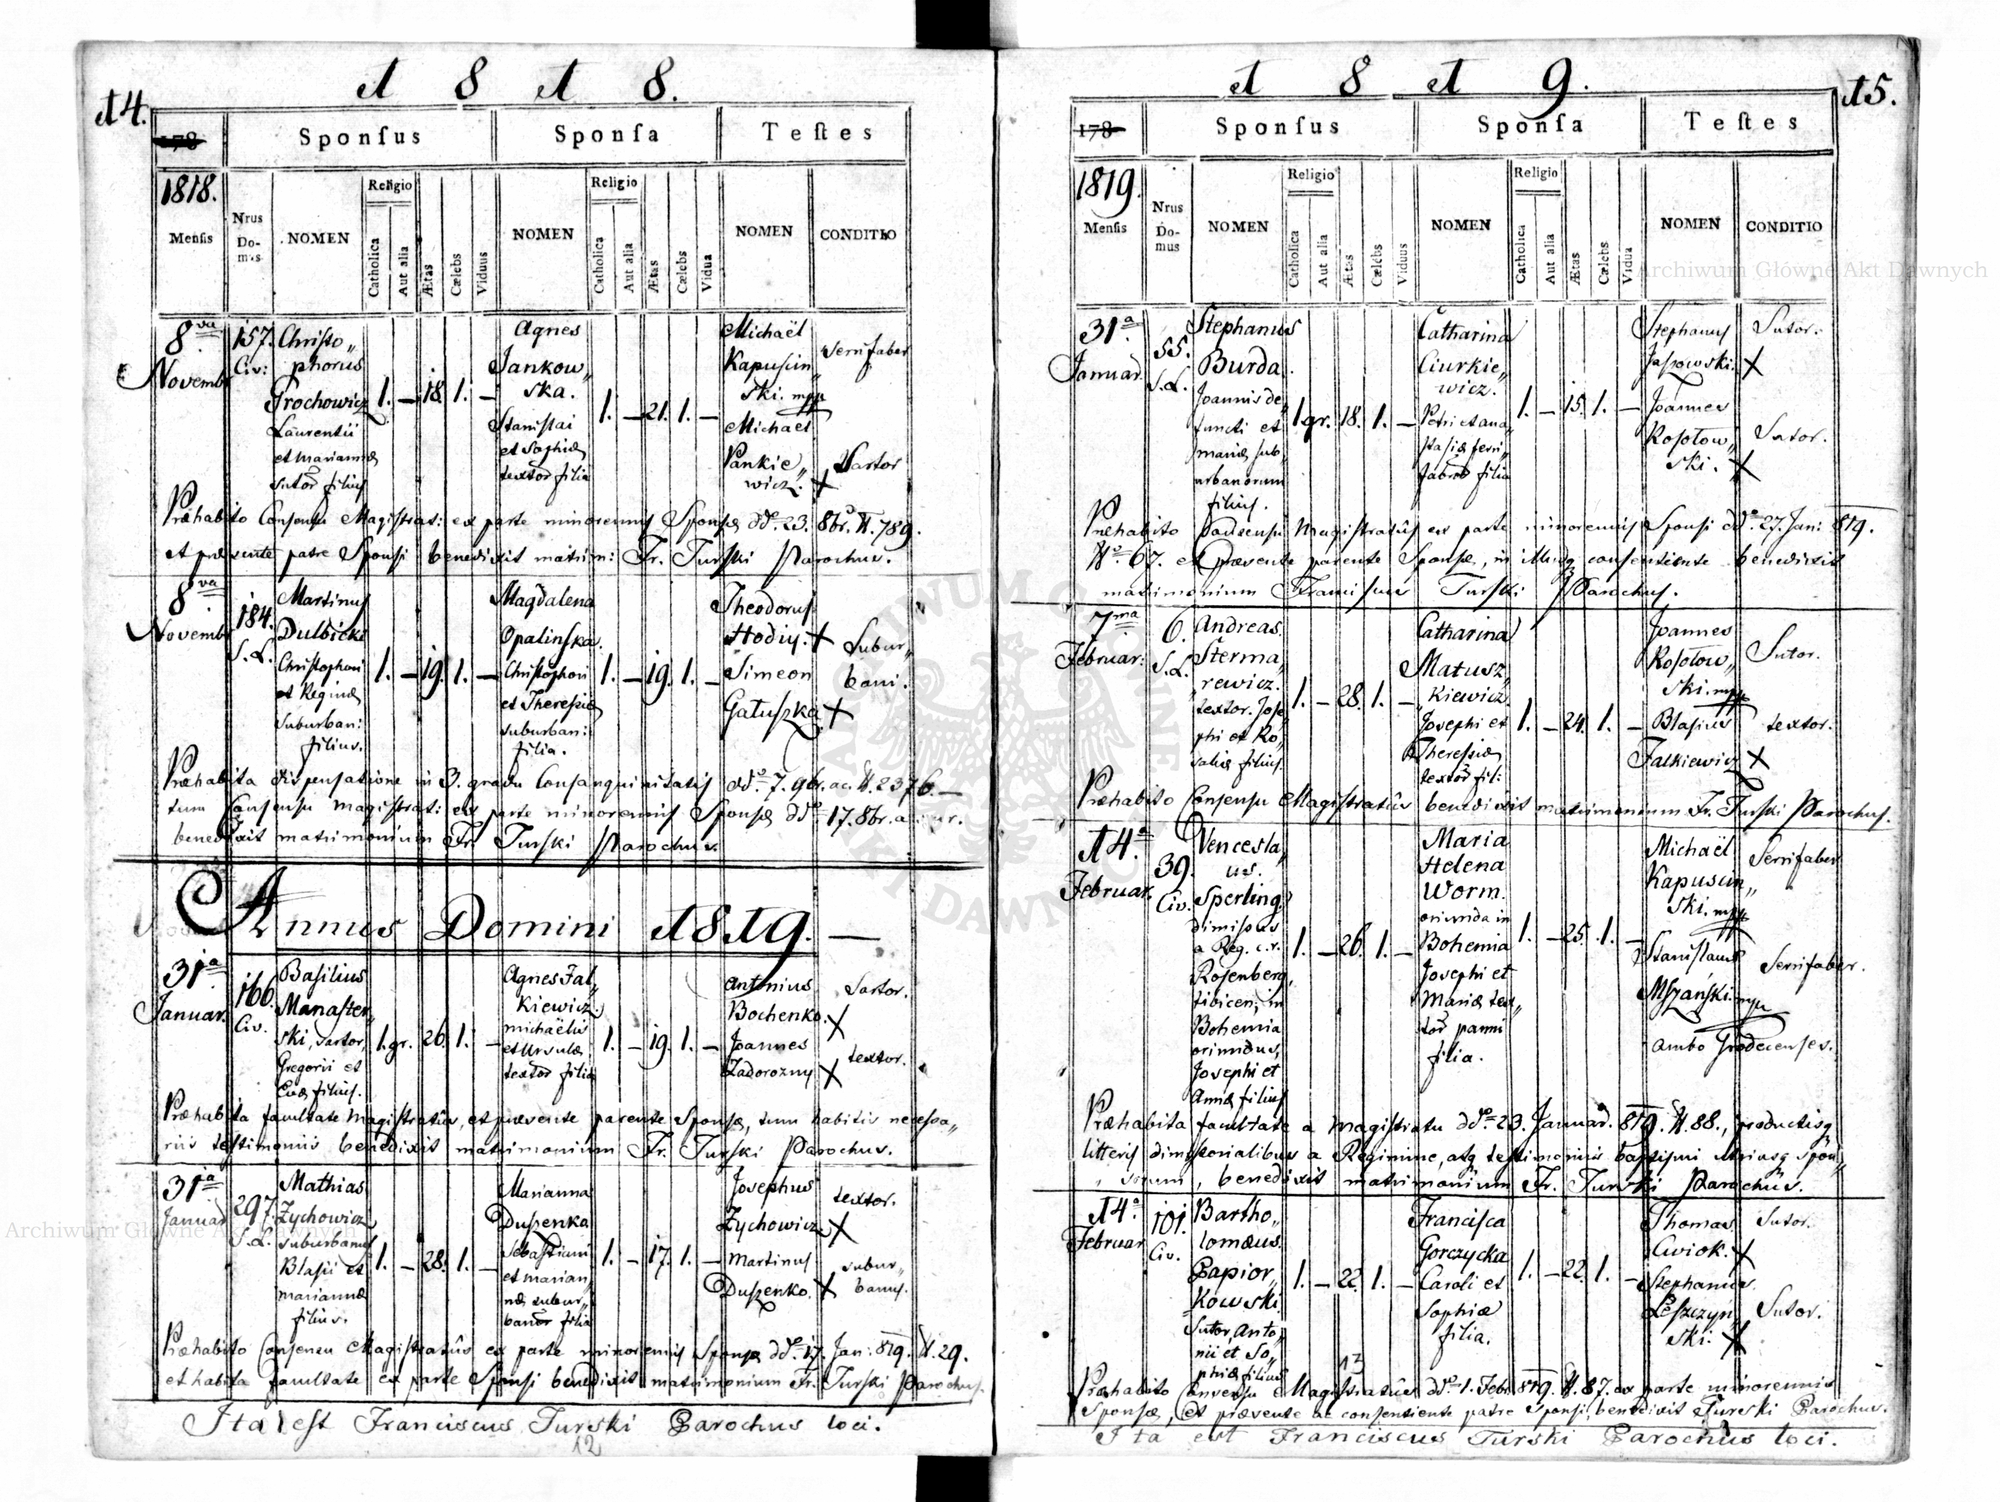 14.
1 8 1 8.
178
Sponſus
Sponſa
Teſtes
1818.
Menſis
Nrus
Do-
mus
NOMEN
Religio
Catholica
Aut alia
Ætas
Cælebs
Viduus
NOMEN
Religio
Catholica
Aut alia
Ætas
Cælebs
Vidua
NOMEN
CONDITIO
8va
Novembr
157.
Civ:
Chriſto„
phorus
Prochowicz
Laurentii
et Mariannæ
sutor filius
1. — 18. 1. —
Agnes
Jankow„
ska.
Stanislai
et Sophiæ
textor filia
1. — 21. 1. —
Michaël
Kapuscin„
ski. mpp
Michael
Pankie„
wicz. X
Serrifaber
Sartor
Præhabito Consensu Magistrat: ex parte minorennis Sponsæ ddo. 23. 8br. N. 789.
et præsente patre Sponsi benedixit matrim: Fr. Turski Parochus.
8va
Novembr
184.
S. L.
Martinus
Dulbicki
Christophori
et Reginæ
suburban:
filius.
1. — 19. 1. —
Magdalena
Opalinska.
Christophori
et Theresiæ
suburban:
filia.
1. — 19. 1. —
Theodorus
Hodiy. X
Simeon
Gałuszka X
Subur„
bani.
Præhabita dispensatione in 3. gradu Consanguinitatis ddo. 7. 9br. a.c. N. 2376. —
tum Consensu Magistrat: ex parte minorennis Sponsæ ddo. 17. 8br. a.
benedixit matrimonium Fr. Turski Parochus.
Annus Domini 1819. —
31a
Januar.
166.
Civ.
Basilius
Manaster„
ski, sartor,
Gregorii et
Evæ filius.
1. gr. 26. 1. —
Agnes Fal„
kiewicz.
Michaëlis
et Ursulæ
textor filia
1. — 19. 1. —
Antonius
Bochenko. X
Joannes
Zadorozny X
Sartor.
textor.
Præhabita facultate Magistratûs, et præsente parente Sponsæ, tum habitis necessa„
riis testimoniis benedixit matrimonium Fr. Turski Parochus.
31a
Januar
297.
S. L.
Mathias
Zychowicz
suburbanus
Blasii et
Mariannæ
filius.
1. — 28. 1. —
Marianna
Duszenka
Sebastiani
et Marian„
næ subur„
banor filia
1. — 17. 1. —
Josephus
Zychowicz X
Martinus
Duszenko. X
textor.
subur„
banus.
Præhabito Consensu Magistratûs ex parte minorennis Sponsæ ddo. 17. Jan: 819. N. 29.
et habita facultate ex parte Sponsi benedixit matrimonium Fr. Turski Parochus.
Ita est Franciscus Turski Parochus loci.
12
1 8 1 9.
15.
178
Sponſus
Sponſa
Teſtes
1819.
Menſis
Nrus
Do-
mus
NOMEN
Religio
Catholica
Aut alia
Ætas
Cælebs
Viduus
NOMEN
Religio
Catholica
Aut alia
Ætas
Cælebs
Vidua
NOMEN
CONDITIO
31a
Januar.
55.
S. L.
Stephanus
Burda.
Joannis de„
functi et
Mariæ sub„
urbanorum
filius.
1 gr. 18. 1. —
Catharina
Ciurkie„
wicz.
Petri et Ana„
stasiæ ferri„
fabror filia
1. — 15. 1. —
Stephanus
Jaszowski. X
Joannes
Kosołow„
ski. X
Sutor.
Sutor.
Præhabito Consensu Magistratûs ex parte minorennis Sponsi ddo 27. Jan: 819.
No 67. et præsente parente Sponsæ, in illudq consentiente benedixit
matrimonium Franciscus Turski Parochus.
7ma
Februar:
6.
S. L.
Andreas
Sterma„
rewicz.
textor. Jose„
phi et Ro„
saliæ filius.
1. — 28. 1. —
Catharina
Matusz„
kiewicz
Josephi et
Theressiæ
textor fil:
1. — 24. 1. —
Joannes
Kosołow„
ski. mpp
Blasius
Falkiewicz X
Sutor.
textor.
Præhabito Consensu Magistratûs benedixit matrimonium Fr. Turski Parochus.
14a
Februar.
39.
Civ.
Vencesla„
us.
Sperling.
dimissus
a Reg. c. r.
Rosenberg,
tibicen, in
Bohemia
oriundus,
Josephi et
Annæ filius
1. — 26. 1. —
Maria
Helena
Worm.
oriunda in
Bohemia
Josephi et
Mariæ tex„
tor panni
filia.
1. — 25. 1. —
Michaël
Kapuscin„
ski. mpp
Stanislaus
Mszański. mpp
ambo Grodecenses.
Serrifaber
Serrifaber.
Præhabita facultate a Magistratu ddo 23. Januar. 819. N. 88., productisq
litteris dimissorialibus a Regimine, atq testimoniis baptismi utriusq spon„
sorum, benedixit matrimonium Fr. Turski Parochus.
14a
Februar
101.
Civ.
Bartho„
lomæus.
Papior„
kowski.
Sutor, Anto„
nii et So„
phiæ filius
1. — 22. 1. —
Francisca
Gorczycka
Caroli et
Sophiæ
filia.
1. — 22. 1. —
Thomas
Cwiok. X
Stephanus
Leszczyn„
ski. X
Sutor.
Sutor.
13
Præhabito Consensu Magistratûs ddo 1. Febr. 819. N. 87. ex parte minorennis
Sponsæ, et præsente ac consentiente patre Sponsi, benedixit Turski Parochus.
Ita est Franciscus Turski Parochus loci.
Archiwum Główne Akt Dawnych
Archiwum Główne Akt Dawnych
ARCHIWUM GŁÓWNE AKT DAWNYCH